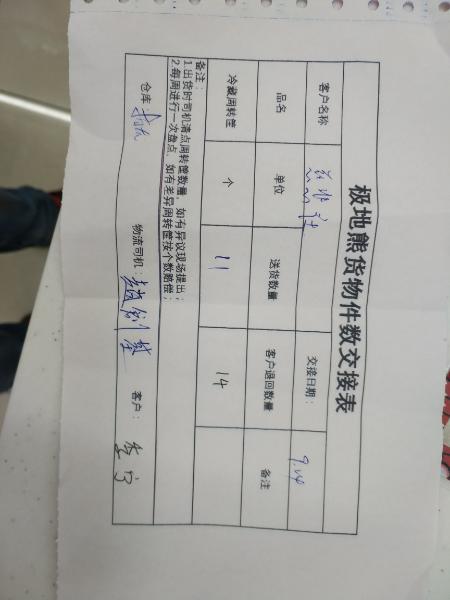 极地熊货物件数交接表
客户名称 交接日期： 9.14
品名 单位 送货数量 客户退回数量 备注
冷藏周转筐 个 11 14
备注：
1.出货时司机清点周转筐数量，如有异议现场提出；
2.每周进行一次盘点，如有差异周转筐按个数赔偿；
仓库： 物流司机： 客户：